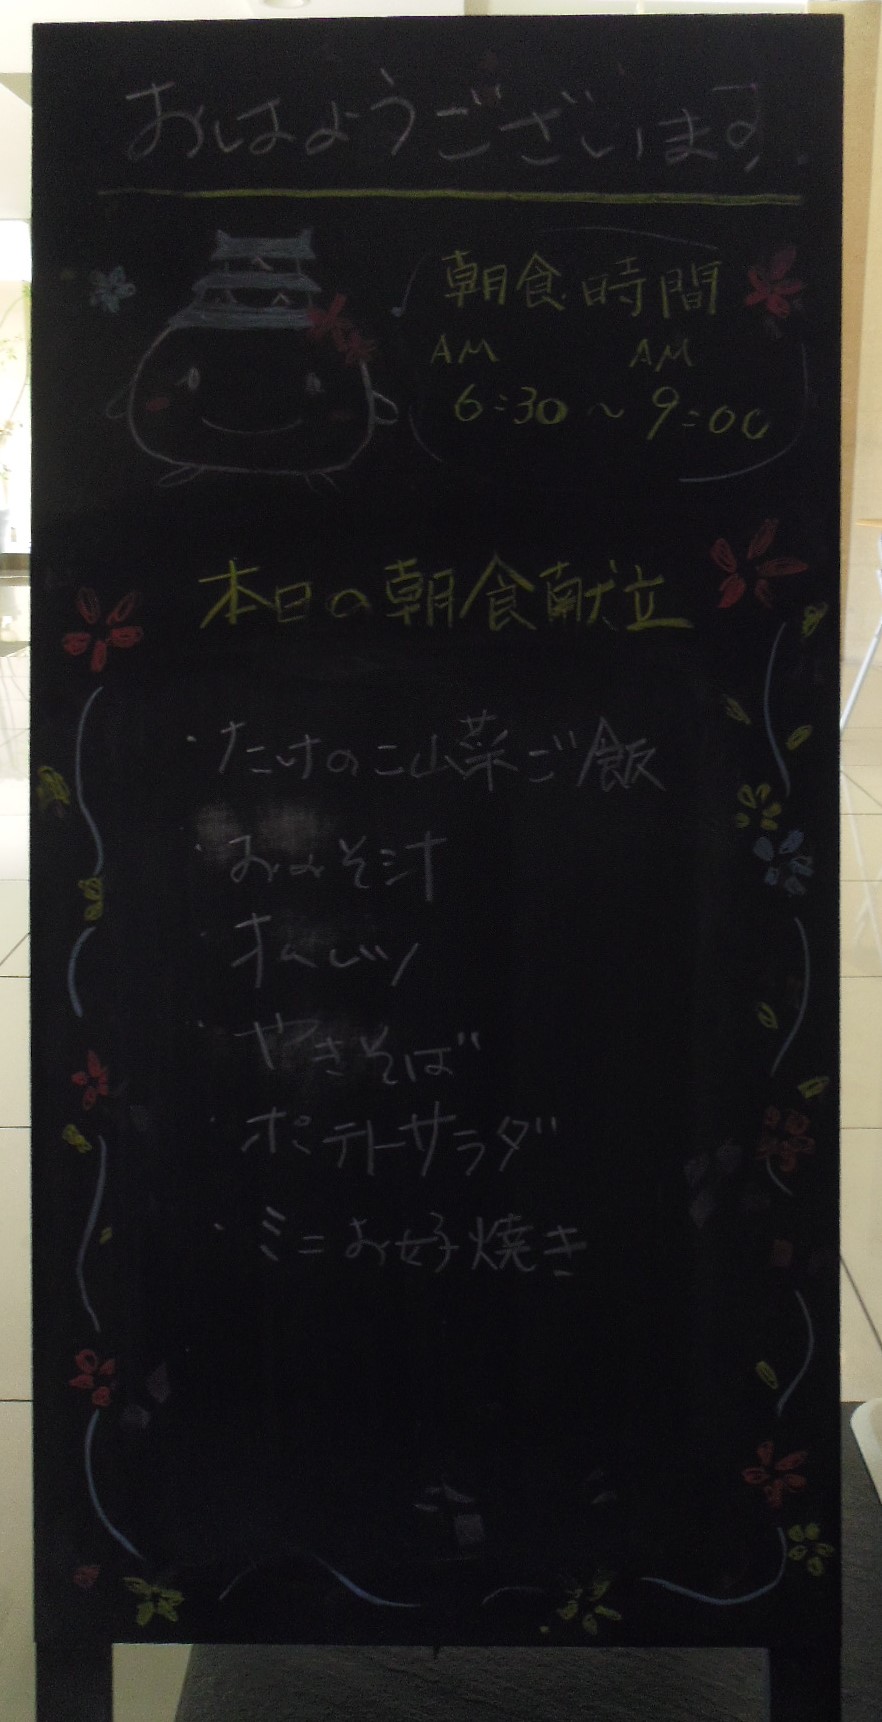 おはようございます
朝食時間
AM AM
6:30~9:00
本日の朝食献立
・たけのこ山菜ご飯
・おみそ汁
・オムレツ
・やきそば
・ポテトサラダ
・ミニお好焼き